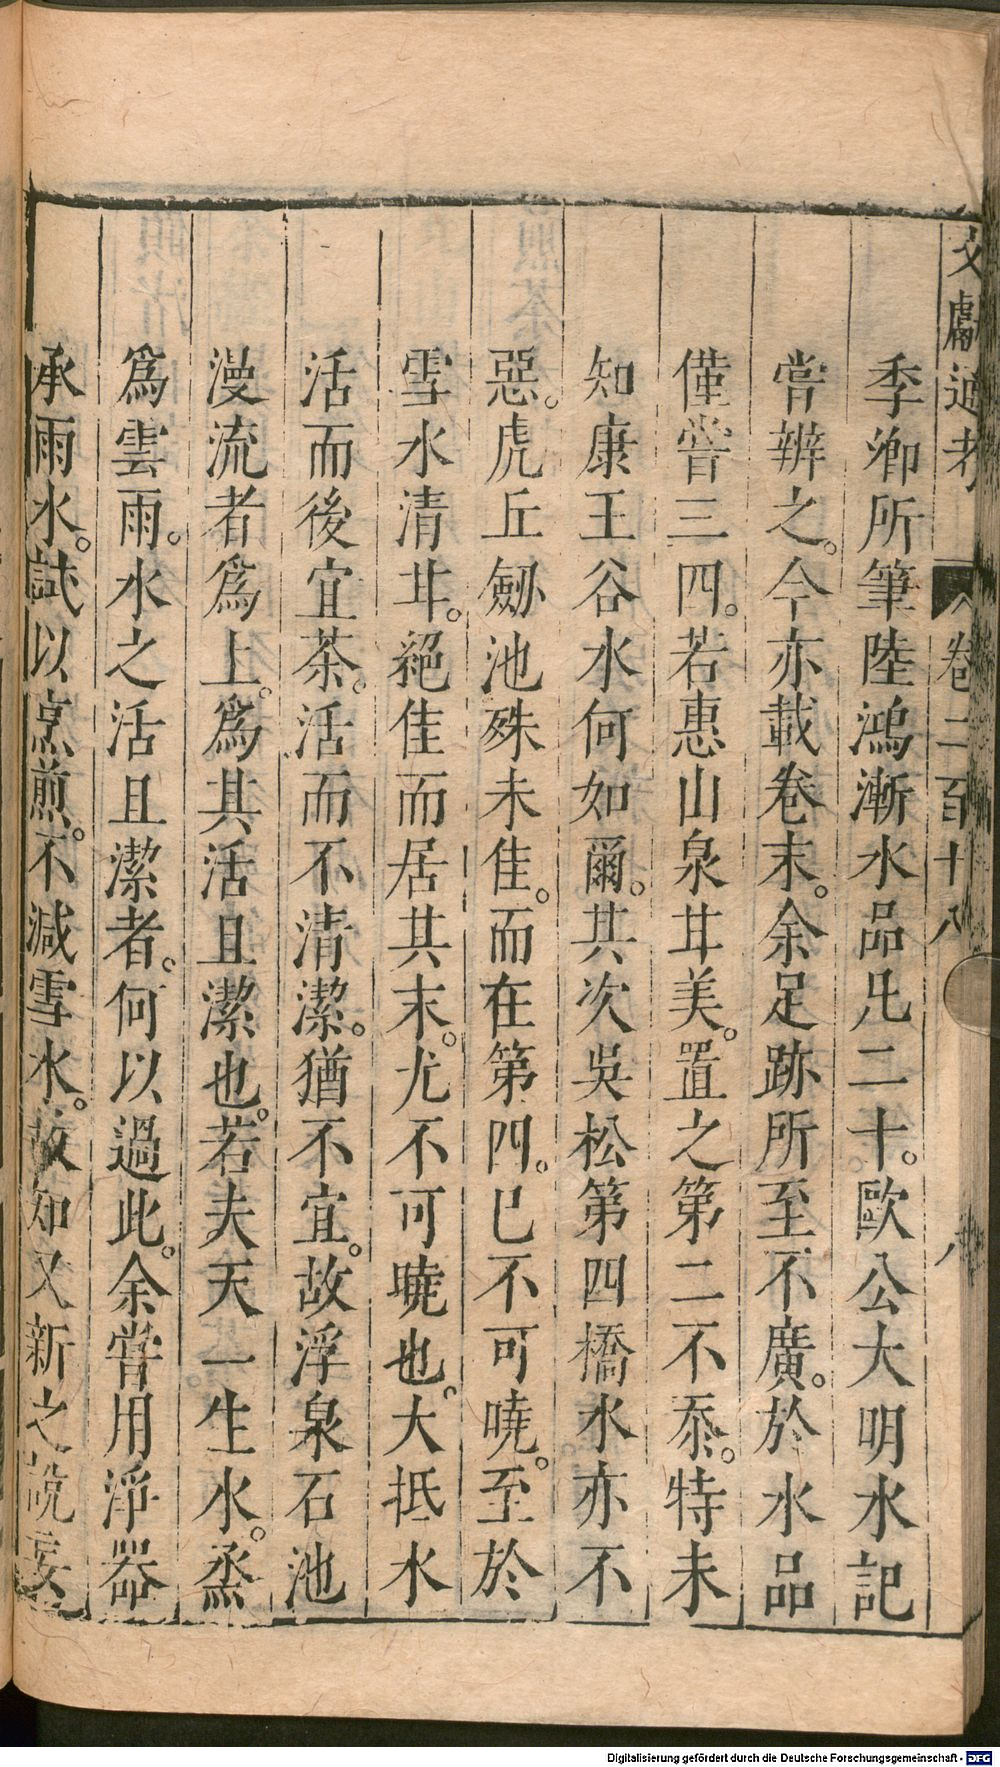 文獻通考 卷二百十八 八
季卿所筆陸鴻漸水品凡二十。歐公大明水記
嘗辨之。今亦載卷末。余足跡所至不廣。於水品
僅嘗三四。若惠山泉甘美。置之第二不忝。特未
知康王谷水何如爾。其次吳松第四橋水亦不
惡。虎丘劒池殊未佳。而在第四。已不可曉。至於
雪水清甘。絕佳而居其末。尤不可曉也。大抵水
活而後宜茶。活而不清潔。猶不宜。故浮泉石池
漫流者爲上。爲其活且潔也。若夫天一生水。烝
爲雲雨。水之活且潔者。何以過此。余嘗用淨器
承雨水。試以烹煎。不減雪水。故知又新之說妄
Digitalisierung gefördert durch die Deutsche Forschungsgemeinschaft - DFG